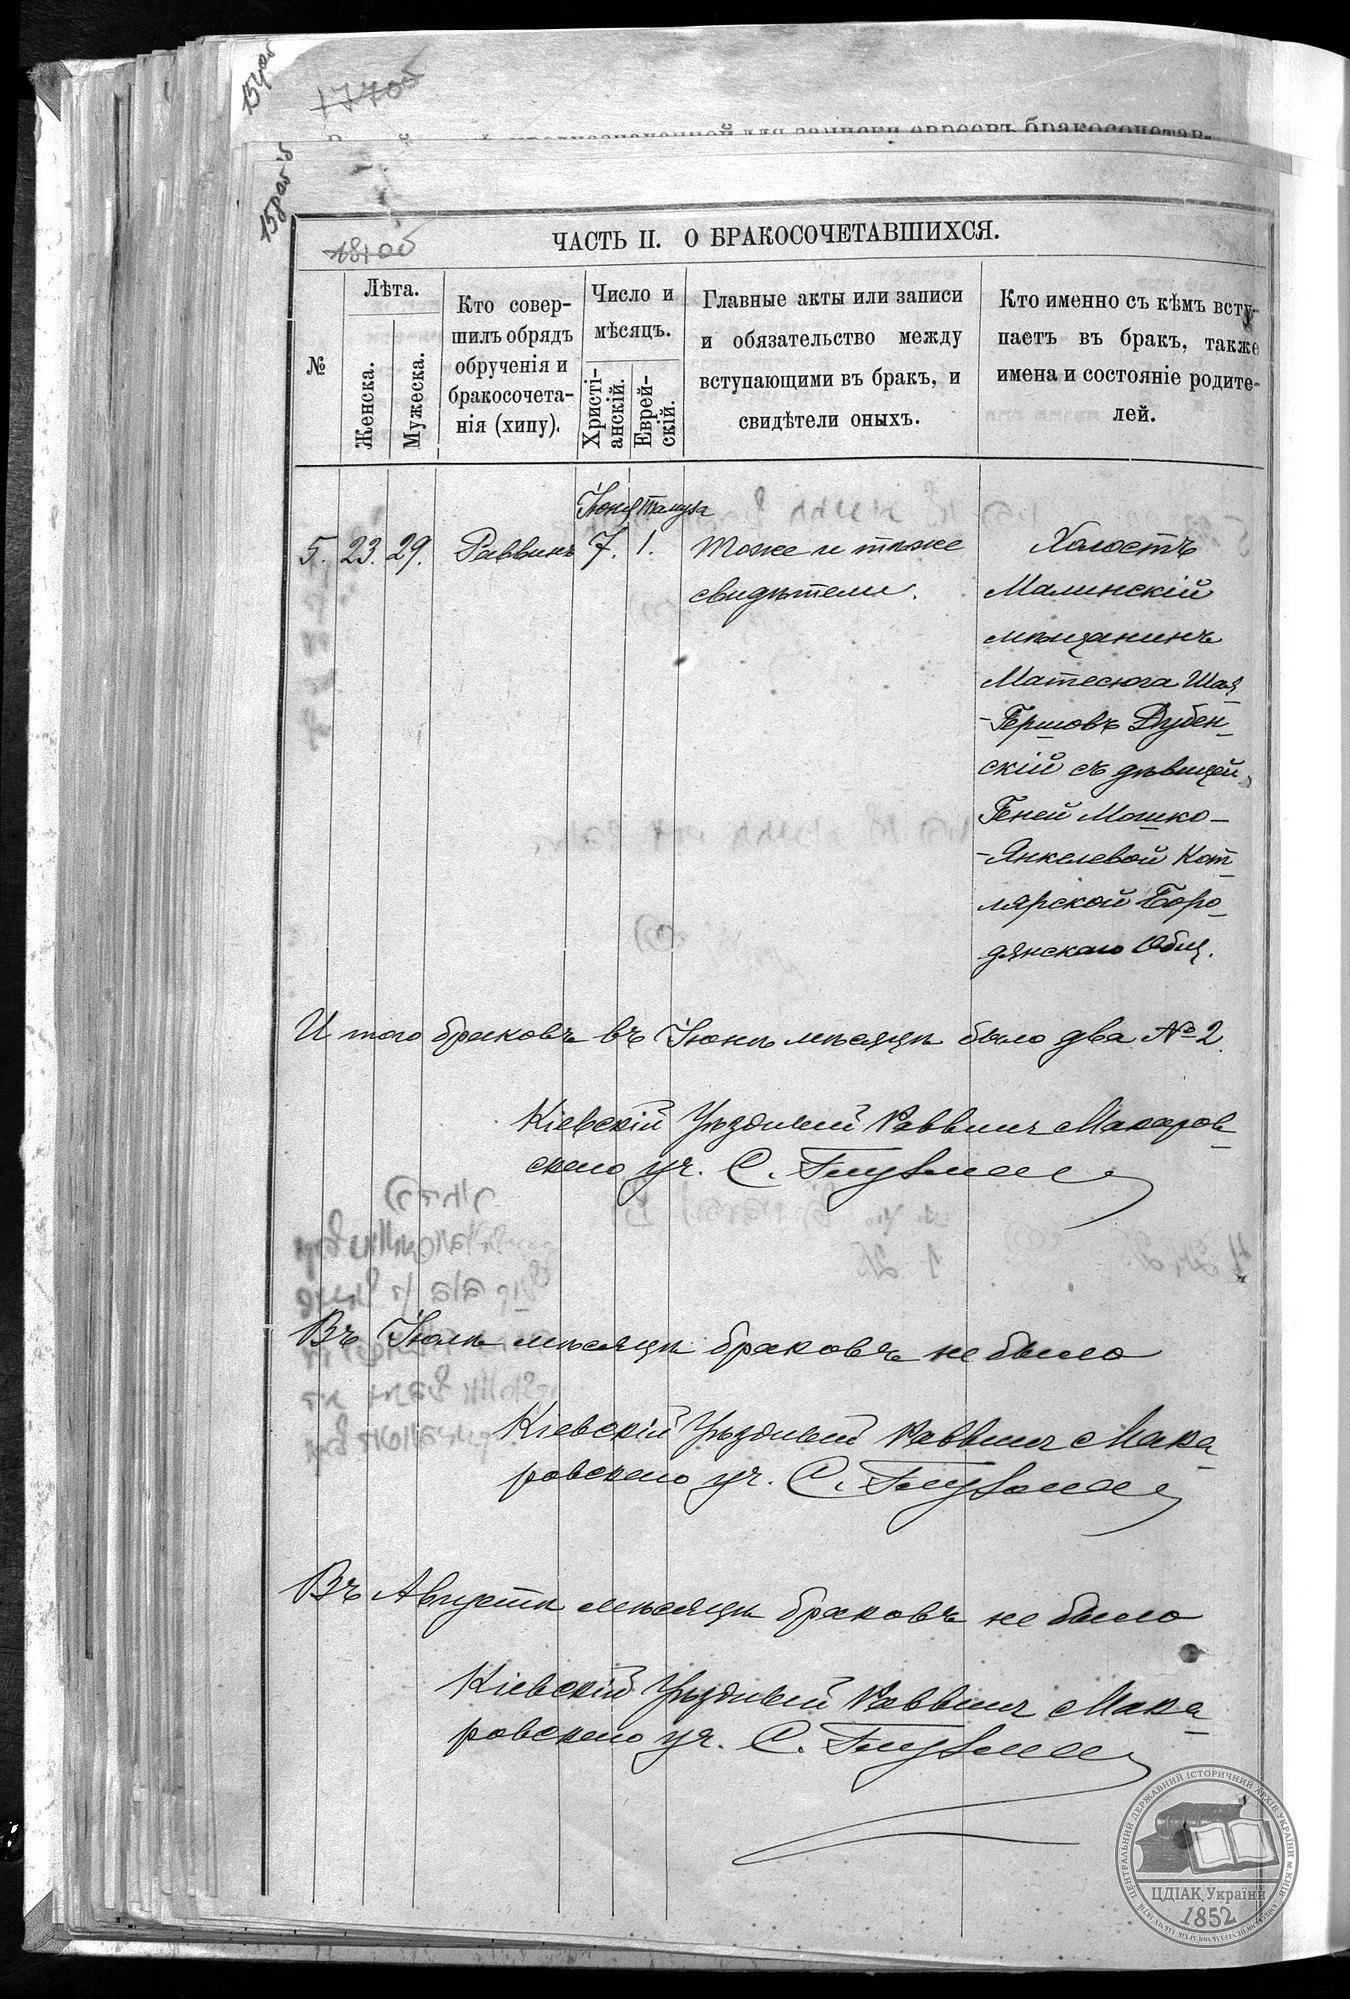 154об
177об
158об
181об
ЧАСТЬ II. О БРАКОСОЧЕТАВШИХСЯ.
№
Лѣта.
Женска.
Мужеска.
Кто совер-
шилъ обрядъ
обрученія и
бракосочета-
нія (хипу).
Число и
мѣсяцъ.
Христі-
анскій.
Еврей-
скій.
Главные акты или записи
и обязательство между
вступающими въ бракъ, и
свидѣтели оныхъ.
Кто именно съ кѣмъ всту-
паетъ въ бракъ, также
имена и состояніе родите-
лей.
Іюня Тамуза
5. 23. 29. Раввинъ 7. 1. Тоже и тѣже
свидѣтели.
Холостъ
Малинскій
мѣщанинъ
Шая
-Гершовъ Дубен-
скій съ дѣвицей
Геней Мошко-
-Янкелевой Кот-
лярской Боро-
дянскаго Общ.
Итого браковъ въ Іюнѣ мѣсяцѣ было два № 2.
Кіевскій Уѣздный Раввинъ Макаров-
скаго уч. С. Глузман
Въ Іюлѣ мѣсяцѣ браковъ не было
Кіевскій Уѣздный Раввинъ Мака-
ровскаго уч. С. Глузман
Въ Августѣ мѣсяцѣ браковъ не было
Кіевскій Уѣздный Раввинъ Мака-
ровскаго уч. С. Глузман
ЦЕНТРАЛЬНИЙ ДЕРЖАВНИЙ ІСТОРИЧНИЙ АРХІВ УКРАЇНИ М. КИЇВ
ЦДІАК України
1852